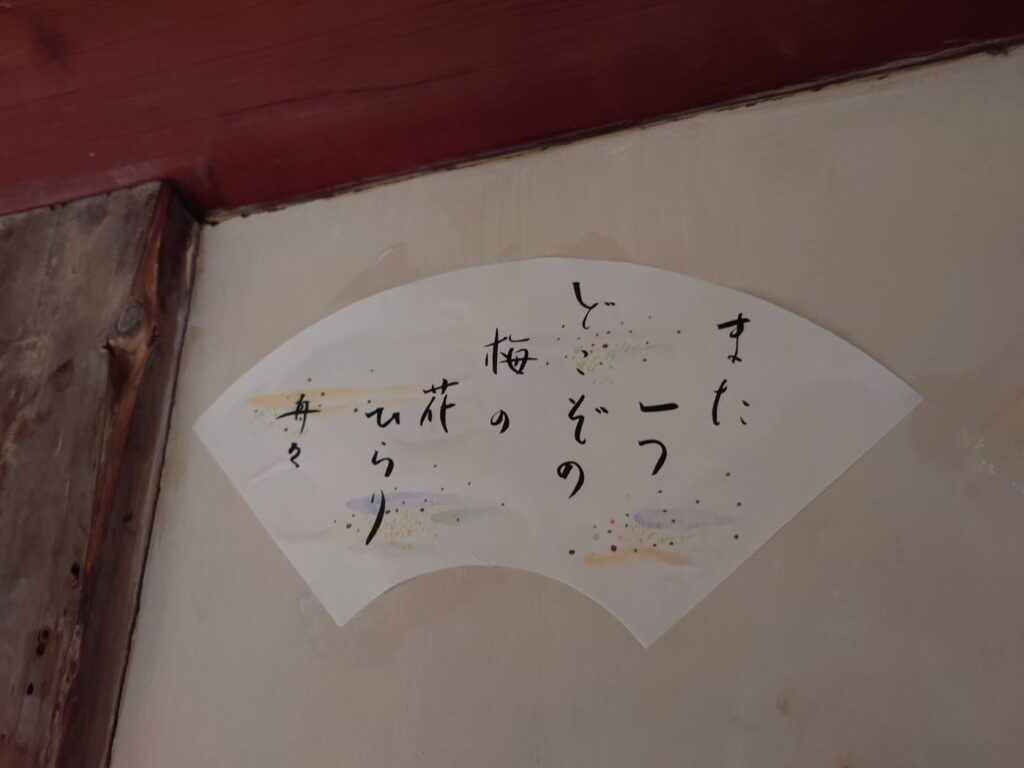 また
一つ
どこぞの
梅の
花
ひらり
舟々